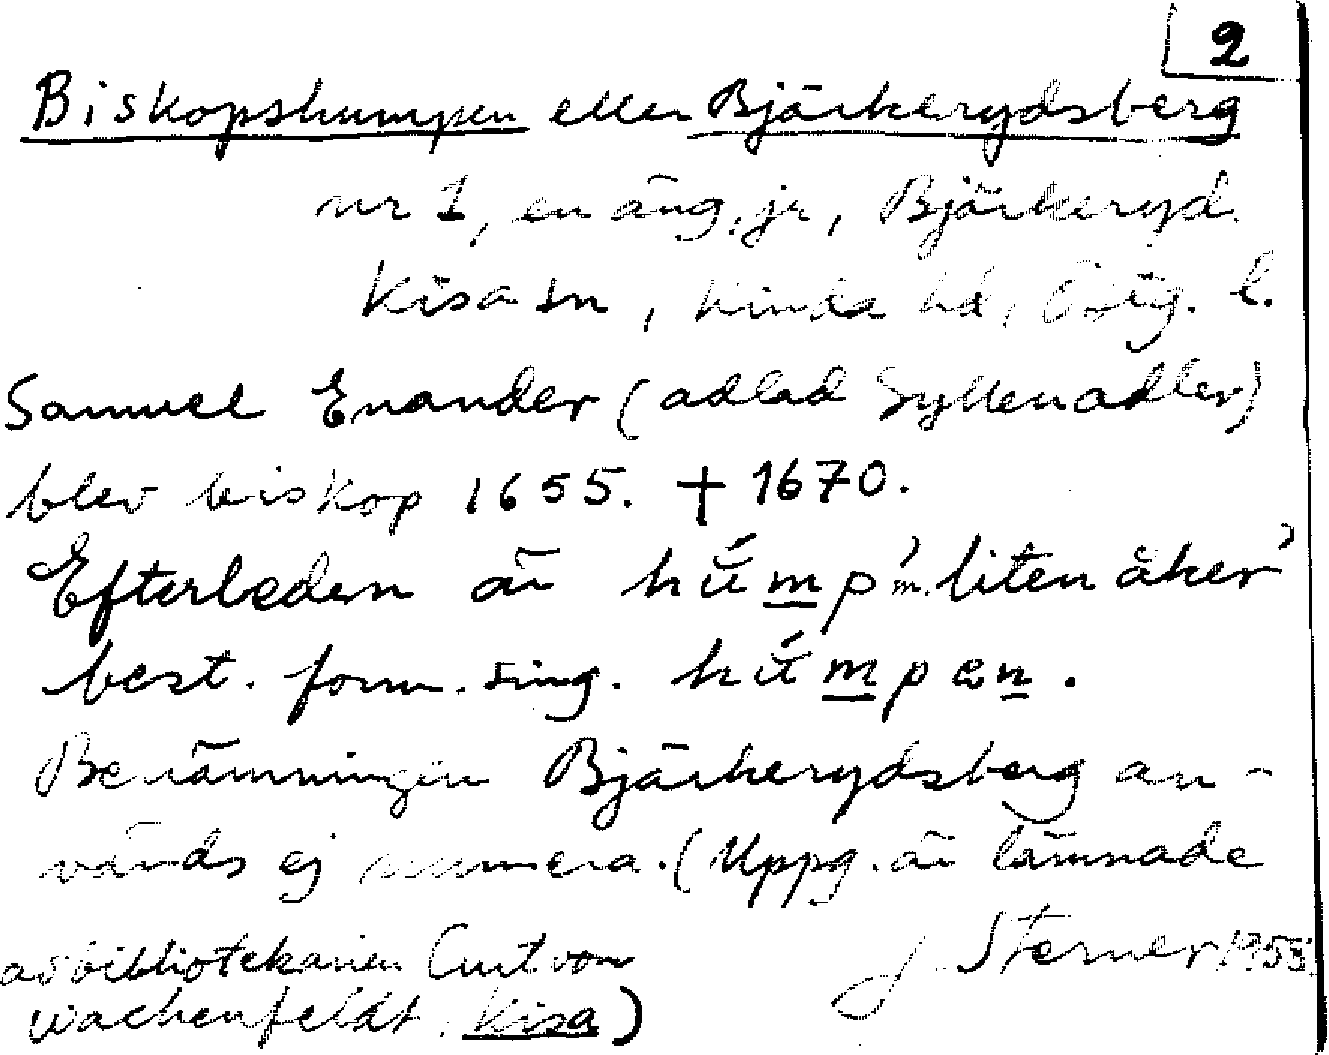 2
Biskopshumpen eller Bjärkerydsberg
nr 1, en äng, jr, Bjärkeryd
Kisa sn, Kinda hd, Östg. l.
Samuel Enander (adlad Gyllenadler)
blev biskop 1655. † 1670.
Efterleden är hump m. 'liten åker'
best. form. sing. humpen.
Benämningen Bjärkerydsberg an-
vänds ej numera. (Uppg. är lämnade
av bibliotekarien Curt von
Wachenfeldt, Kisa)
J. Sterner 1955